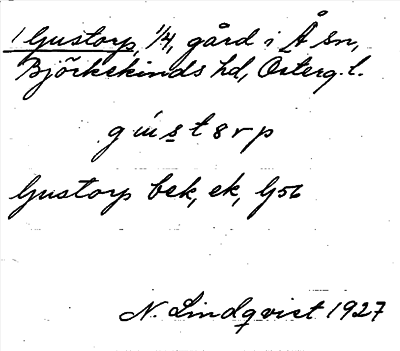 1 Gustorp, 1/4, gård i Å sn,
Björkekinds hd, Österg. l.
gústɵrp
Gustorp bek, ek, G56
N. Lindqvist 1927